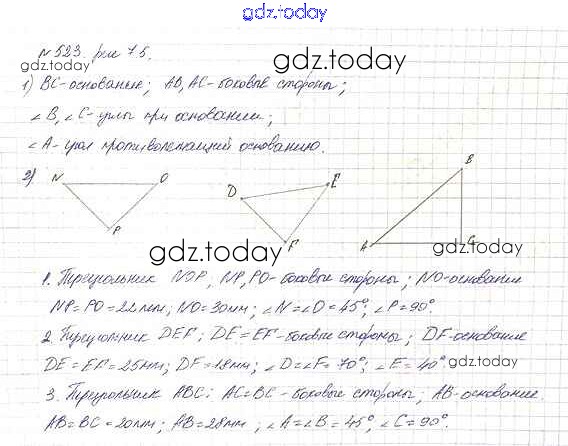 gdz.today
№ 523. рис 75.
gdz.today gdz.today
1) BC-основание; AB, AC-боковые стороны;
∠B, ∠C-углы при основании;
∠A-угол противолежащий основанию.
2) N O D E B
P F A C
gdz.today gdz.today
1. Треугольник NOP; NP, PO-боковые стороны; NO-основание
NP=PO=22мм; NO=30мм; ∠N=∠O=45°; ∠P=90°.
2. Треугольник DEF; DE=EF-боковые стороны; DF-основание
DE=EF=25мм; DF=18мм; ∠D=∠F=70°; ∠E=40° gdz.today
3. Треугольник ABC: AC=BC-боковые стороны; AB-основание.
AB=BC=20мм; AB=28мм; ∠A=∠B=45°; ∠C=90°.
gdz.today